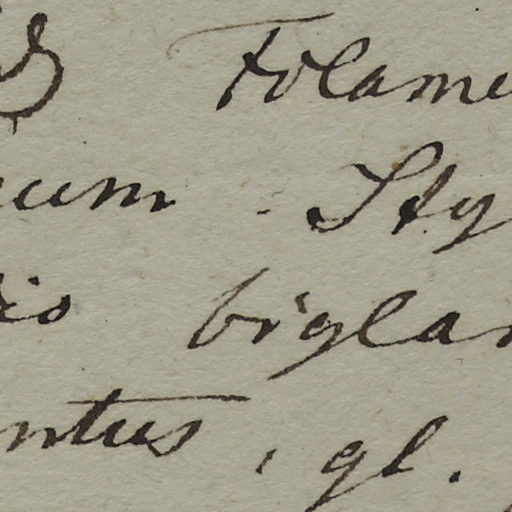 Folame
um. Sty
is biglan
ntus, gl.